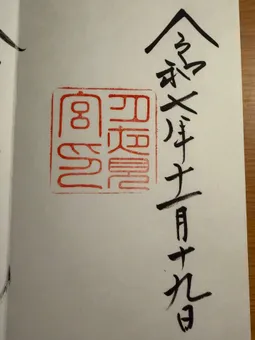 令和七年十一月十九日
月夜見
宮印